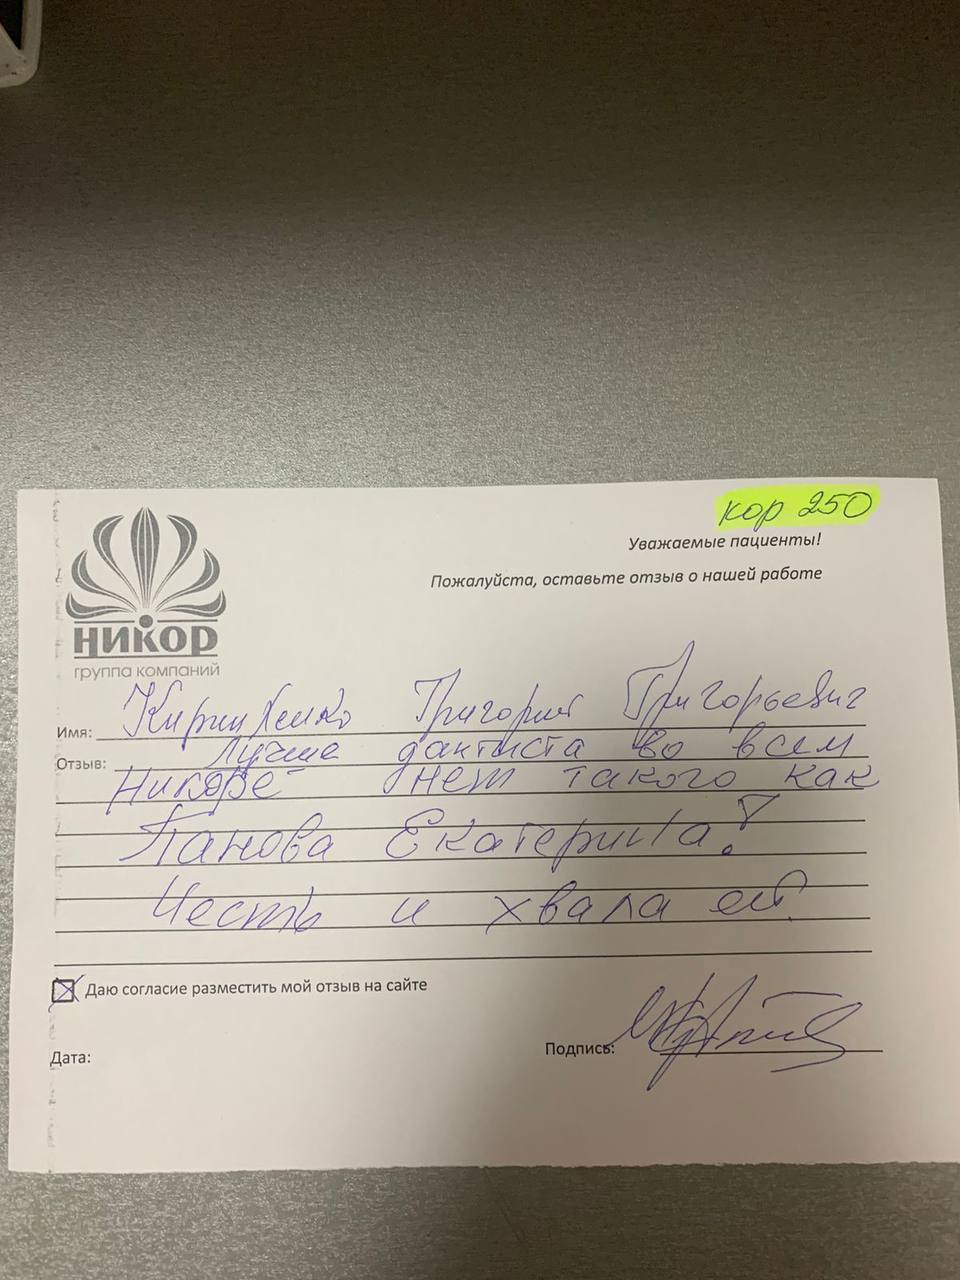 кор 250
Уважаемые пациенты!
Пожалуйста, оставьте отзыв о нашей работе
НИКОР
группа компаний
Имя: Кириленко Григорий Григорьевич
Отзыв: лучше дантиста во всем
Никоре нет такого как
Панова Екатерина!
Честь и хвала ей
Даю согласие разместить мой отзыв на сайте
Дата:
Подпись: